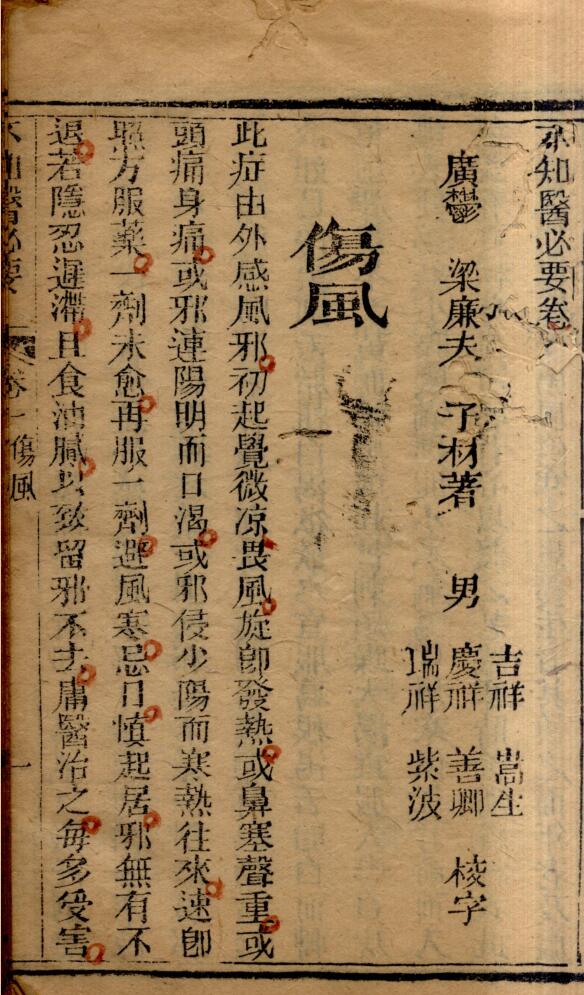 不知醫必要卷
廣鬱 梁廉夫 子材著 男
吉祥 嵩生
慶祥 善卿 校字
瑞祥 紫波
傷風
此症由外感風邪初起覺微凉畏風旋卽發熱或鼻塞聲重或
頭痛身痛或邪連陽明而口渴或邪侵少陽而寒熱往來速卽
照方服藥一劑未愈再服一劑避風寒忌口慎起居邪無有不
退若隱忍遲滯且食油膩以致留邪不去庸醫治之每多受害
不知醫必要 卷一傷風 一